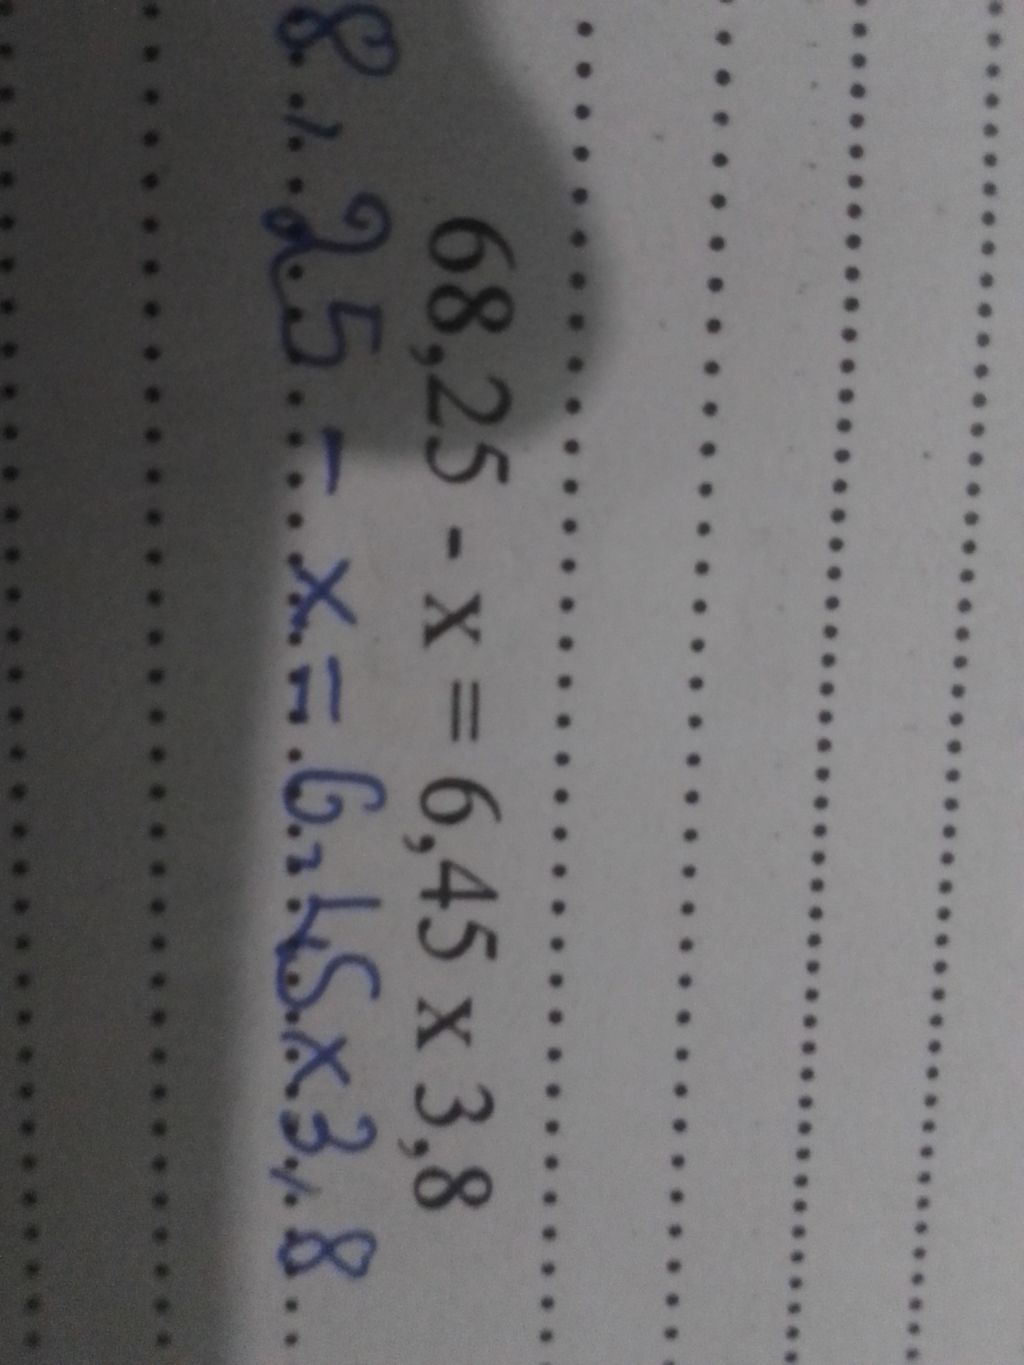 68,25 - x = 6,45 x 3,8
8,25 - x = 6,45 x 3,8